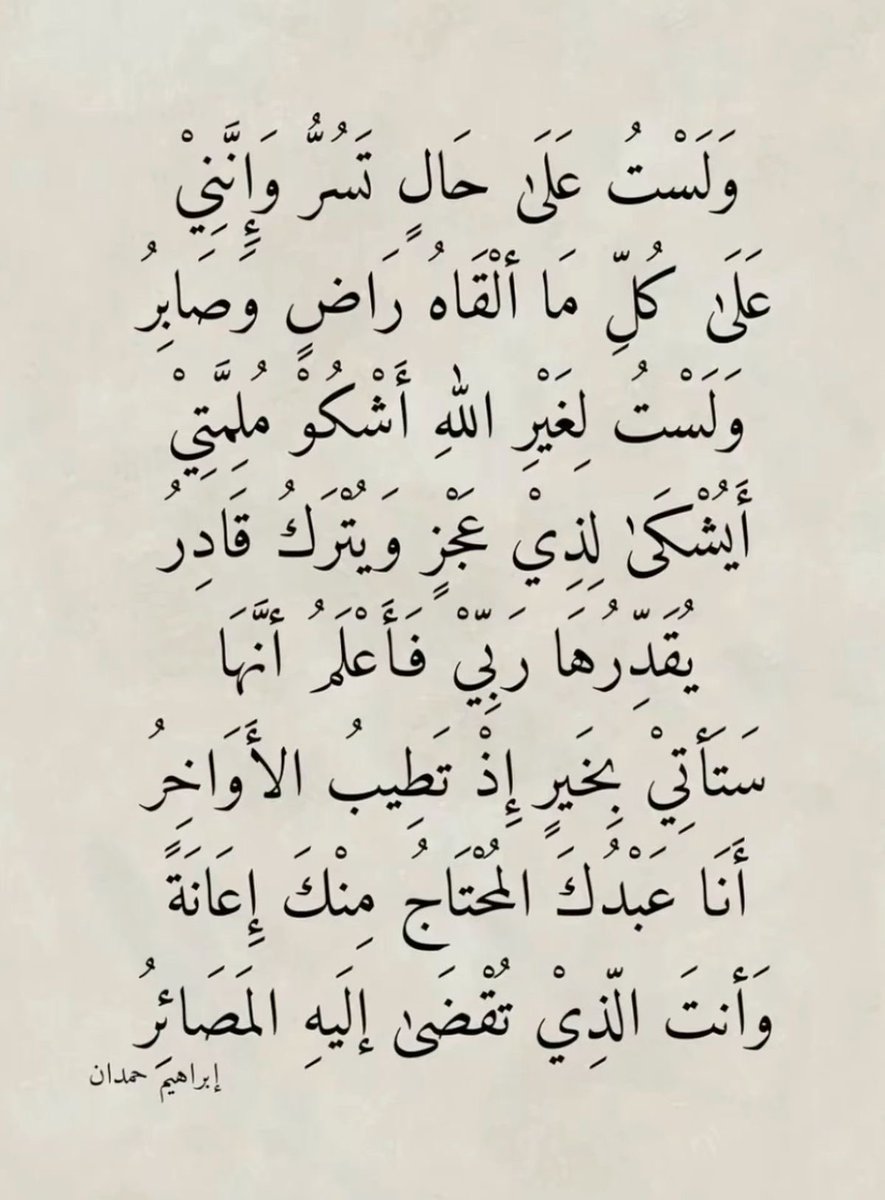 وَلَسْتُ عَلَىٰ حَالٍ تَسُرُّ وَإِنَّنِيْ
عَلَىٰ كُلِّ مَا أَلْقَاهُ رَاضٍ وَصَابِرُ
وَلَسْتُ لِغَيْرِ اللهِ أَشْكُوْ مُلِمَّتِيْ
أَيُشْكَىٰ لِذِيْ عَجْزٍ وَيُتْرَكُ قَادِرُ
يُقَدِّرُهَا رَبِّيْ فَأَعْلَمُ أنَّهَا
سَتَأْتِيْ بِخَيرٍ إِذْ تَطِيبُ الأَوَاخِرُ
أَنَا عَبْدُكَ المُحْتَاجُ مِنْكَ إِعَانَةً
وَأنتَ الّذِيْ تُقْضَىٰ إلَيهِ المَصَائِرُ
إبراهيم حمدان